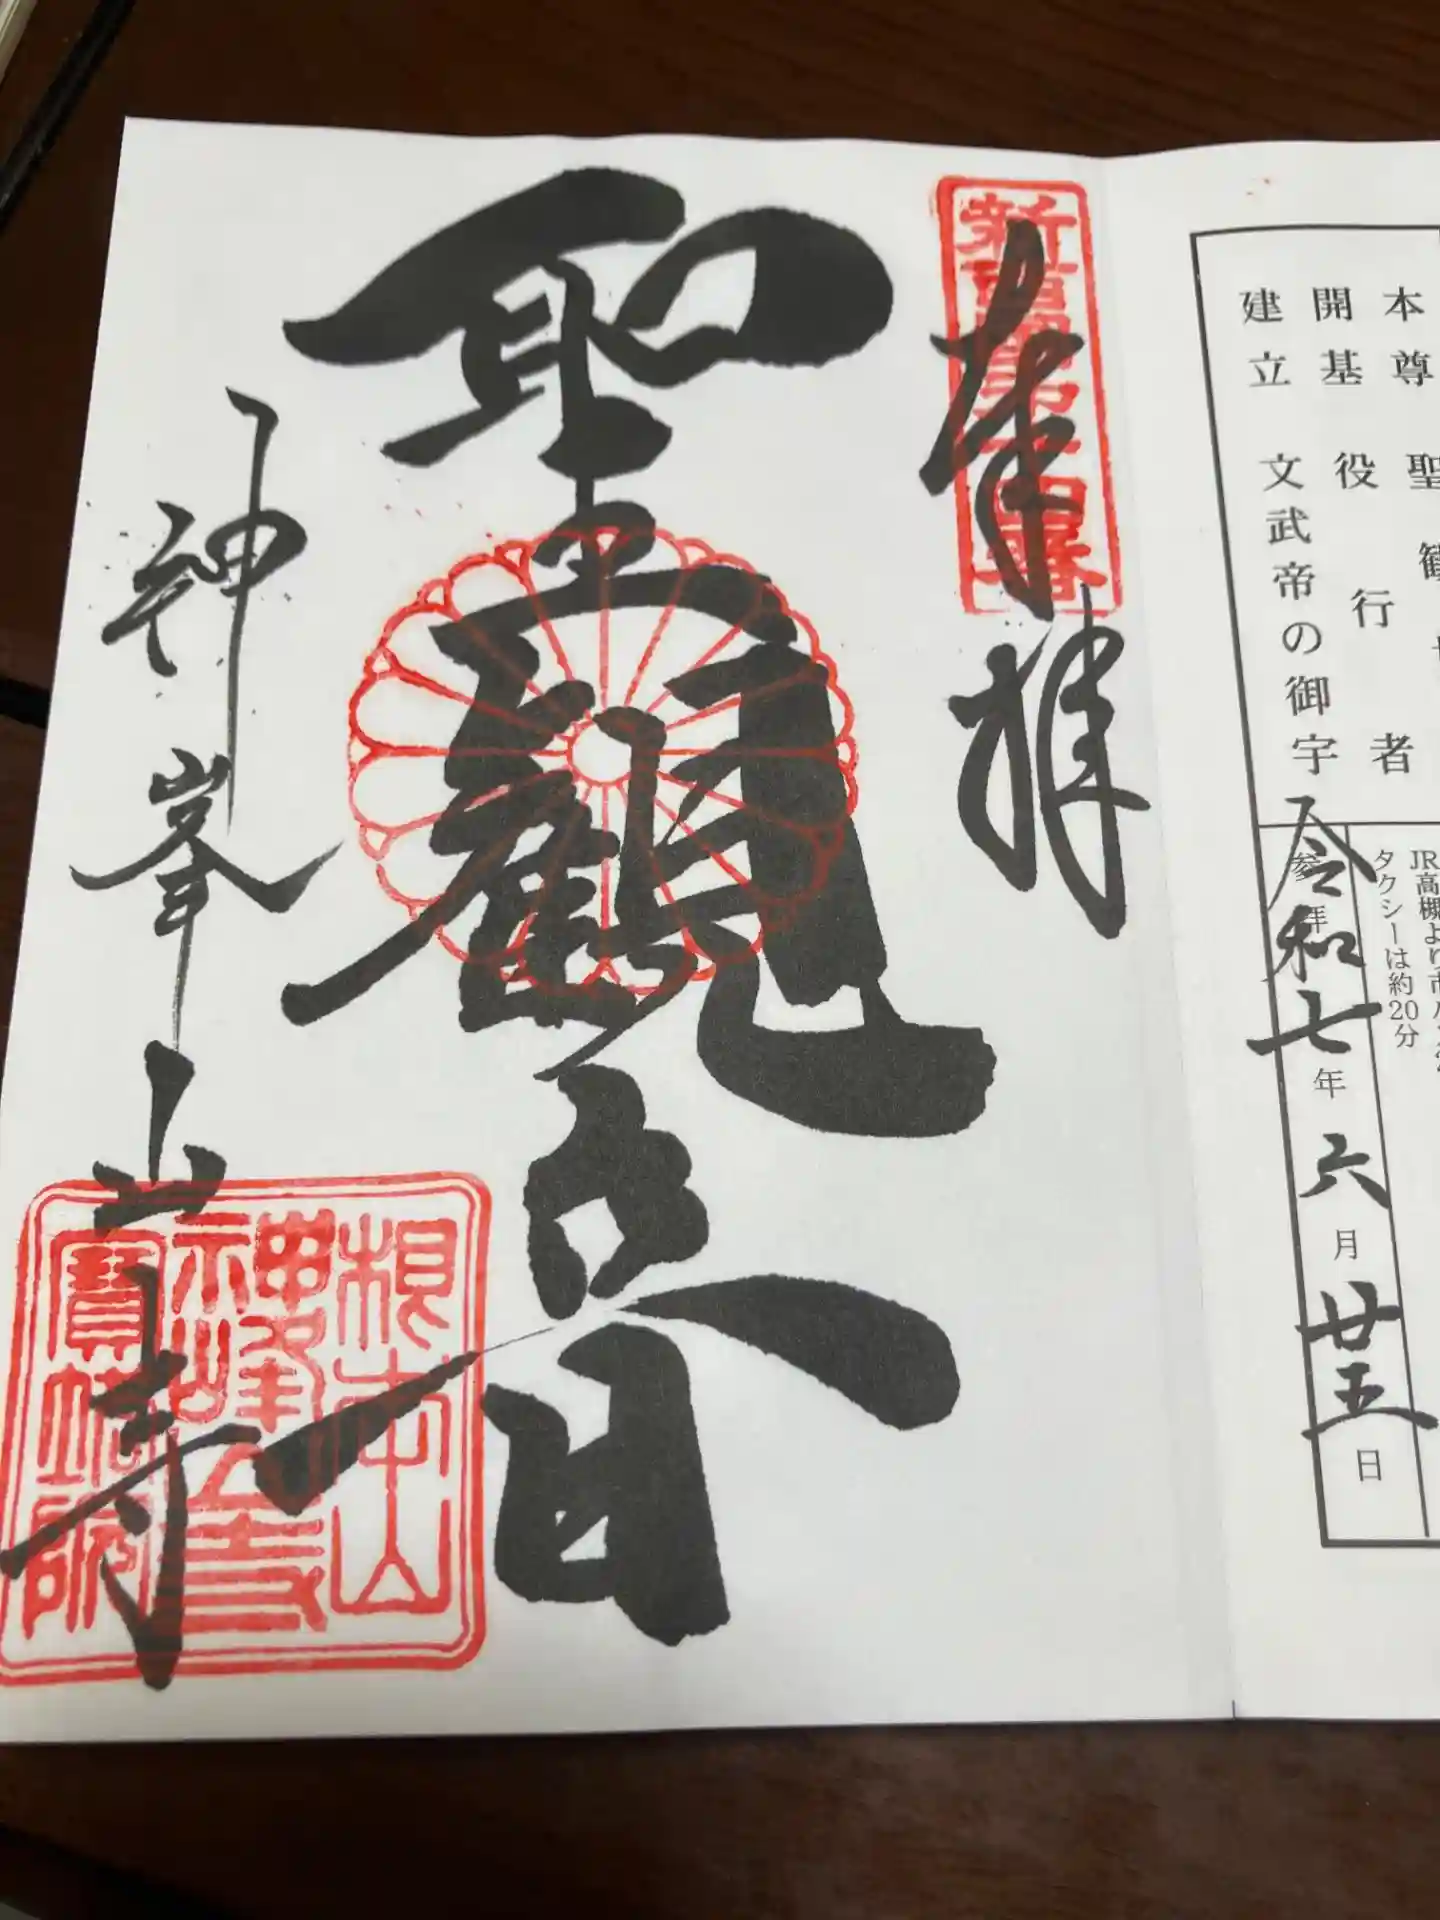 本尊 聖観
開基 役行者
建立 文武帝の御宇
JR高槻より市バス
タクシーは約20分
参拝
令和七年六月廿五日
奉拝
聖観音
神峯山寺
根本山
神峰山寺
寶塔院